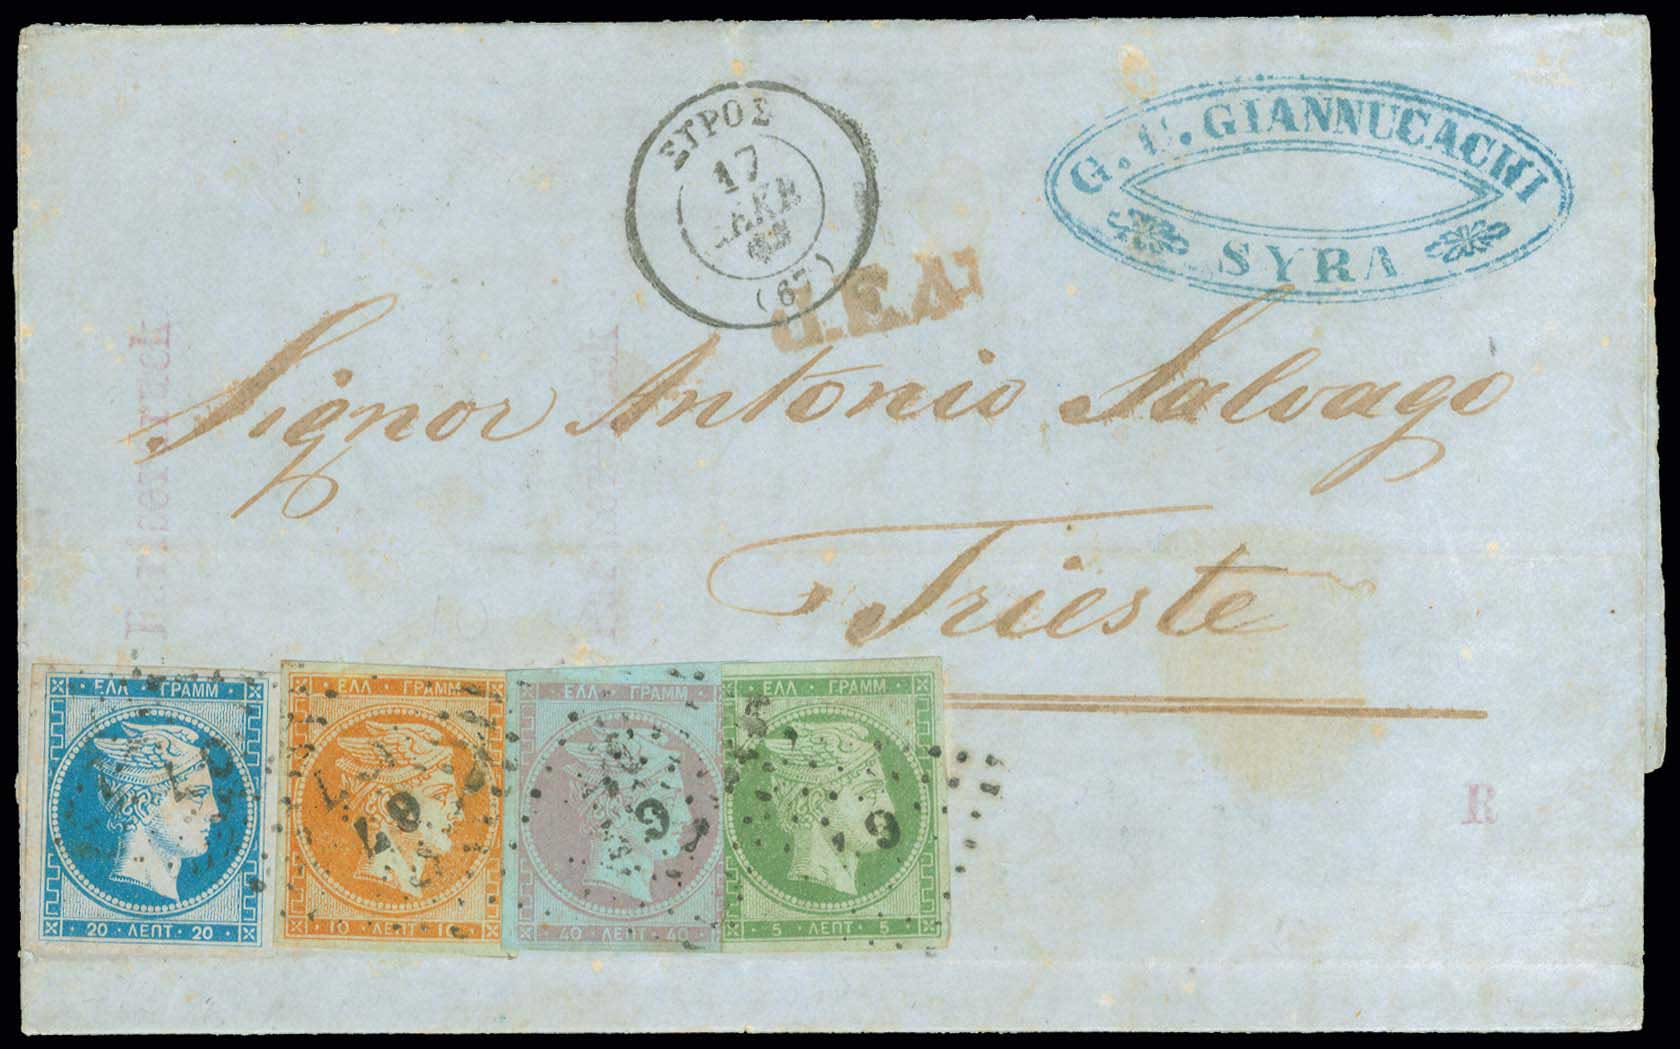 ΣΥΡΟΣ
17
ΔΕΚΒ
(67)
GIANNUCACHI
SYRA
Signor Antonio Salvago
Trieste
R
ΕΛΛ · ΓΡΑΜΜ
20 · ΛΕΠΤ · 20
ΕΛΛ · ΓΡΑΜΜ
10 · ΛΕΠΤ · 10
67
ΕΛΛ · ΓΡΑΜΜ
40 · ΛΕΠΤ · 40
ΕΛΛ · ΓΡΑΜΜ
5 · ΛΕΠΤ · 5